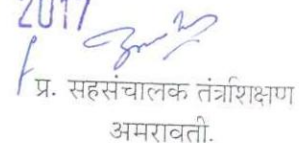 2017
प्र. सहसंचालक तंत्रशिक्षण
अमरावती.